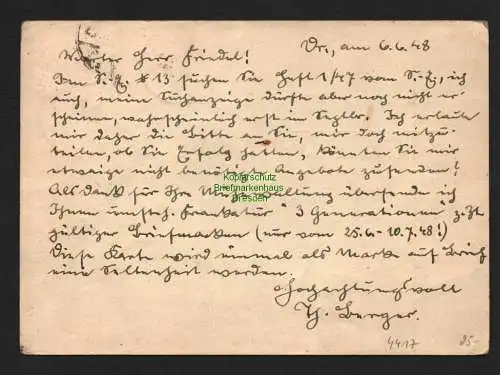 Werter Herr Friedel! Dr., am 6.6.48
Im S.-E. # 13 suchen Sie Heft 1/47 vom S.-E., ich
auch, meine Suchanzeige dürfte aber noch nicht er-
scheinen, wahrscheinlich erst im Septbr. Ich erlaube
mir daher die Bitte an Sie, mir doch mitzu-
teilen, ob Sie Erfolg hatten, könnten Sie mir
etwaige nicht benötigte Angebote zusenden!
Als Dank für Ihre Mühewaltung übersende ich
Ihnen umsteh. Frankatur "3 Generationen" z. Zt.
gültiger Briefmarken (nur vom 25.6.-10.7.48!)
Diese Karte wird einmal als Marke auf Brief
eine Seltenheit werden.
Hochachtungsvoll
Th. Berger.
4417 85-
Kopierschutz
Briefmarkenhaus
Dresden